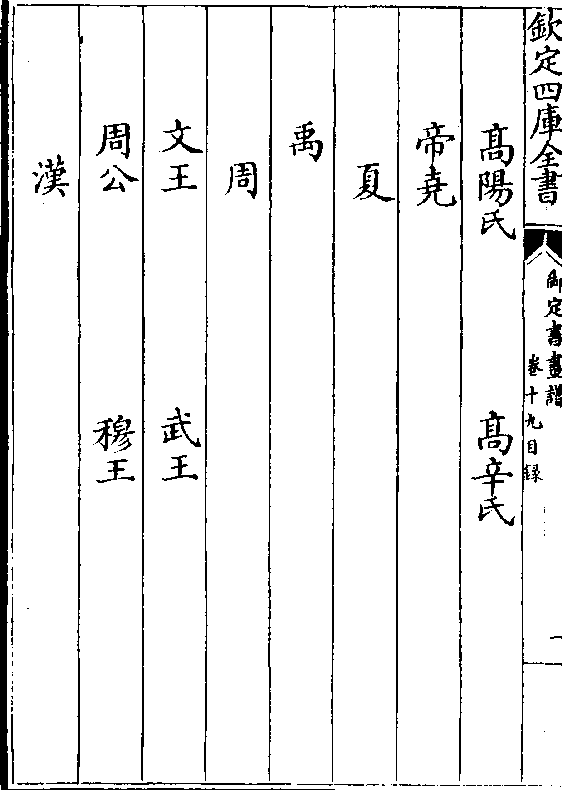 欽定四庫全書
御定書畫譜
卷十九目録
一
髙陽氏 髙辛氏
帝堯
夏
禹
周
文王 武王
周公 穆王
漢